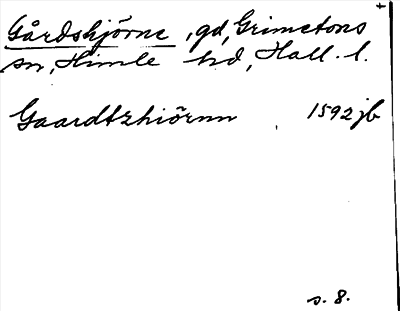 Gårdshjörne, gd, Grimetons
sn, Himle hd, Hall. l.
Gaardtzhiörnn 1592 jb
s. 8.